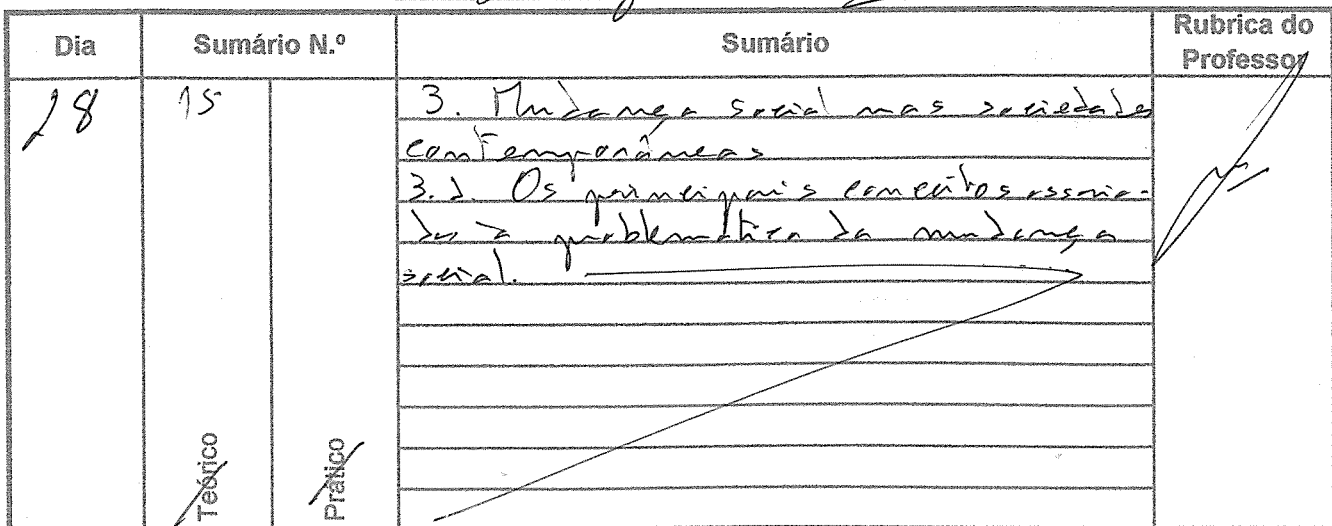 Dia Sumário N.º Sumário Rubrica do Professor
28 15 3. Mudança social nas sociedades
contemporâneas
3.1. Os principais conceitos associa-
dos à problemática da mudança
social.
Teórico Prático